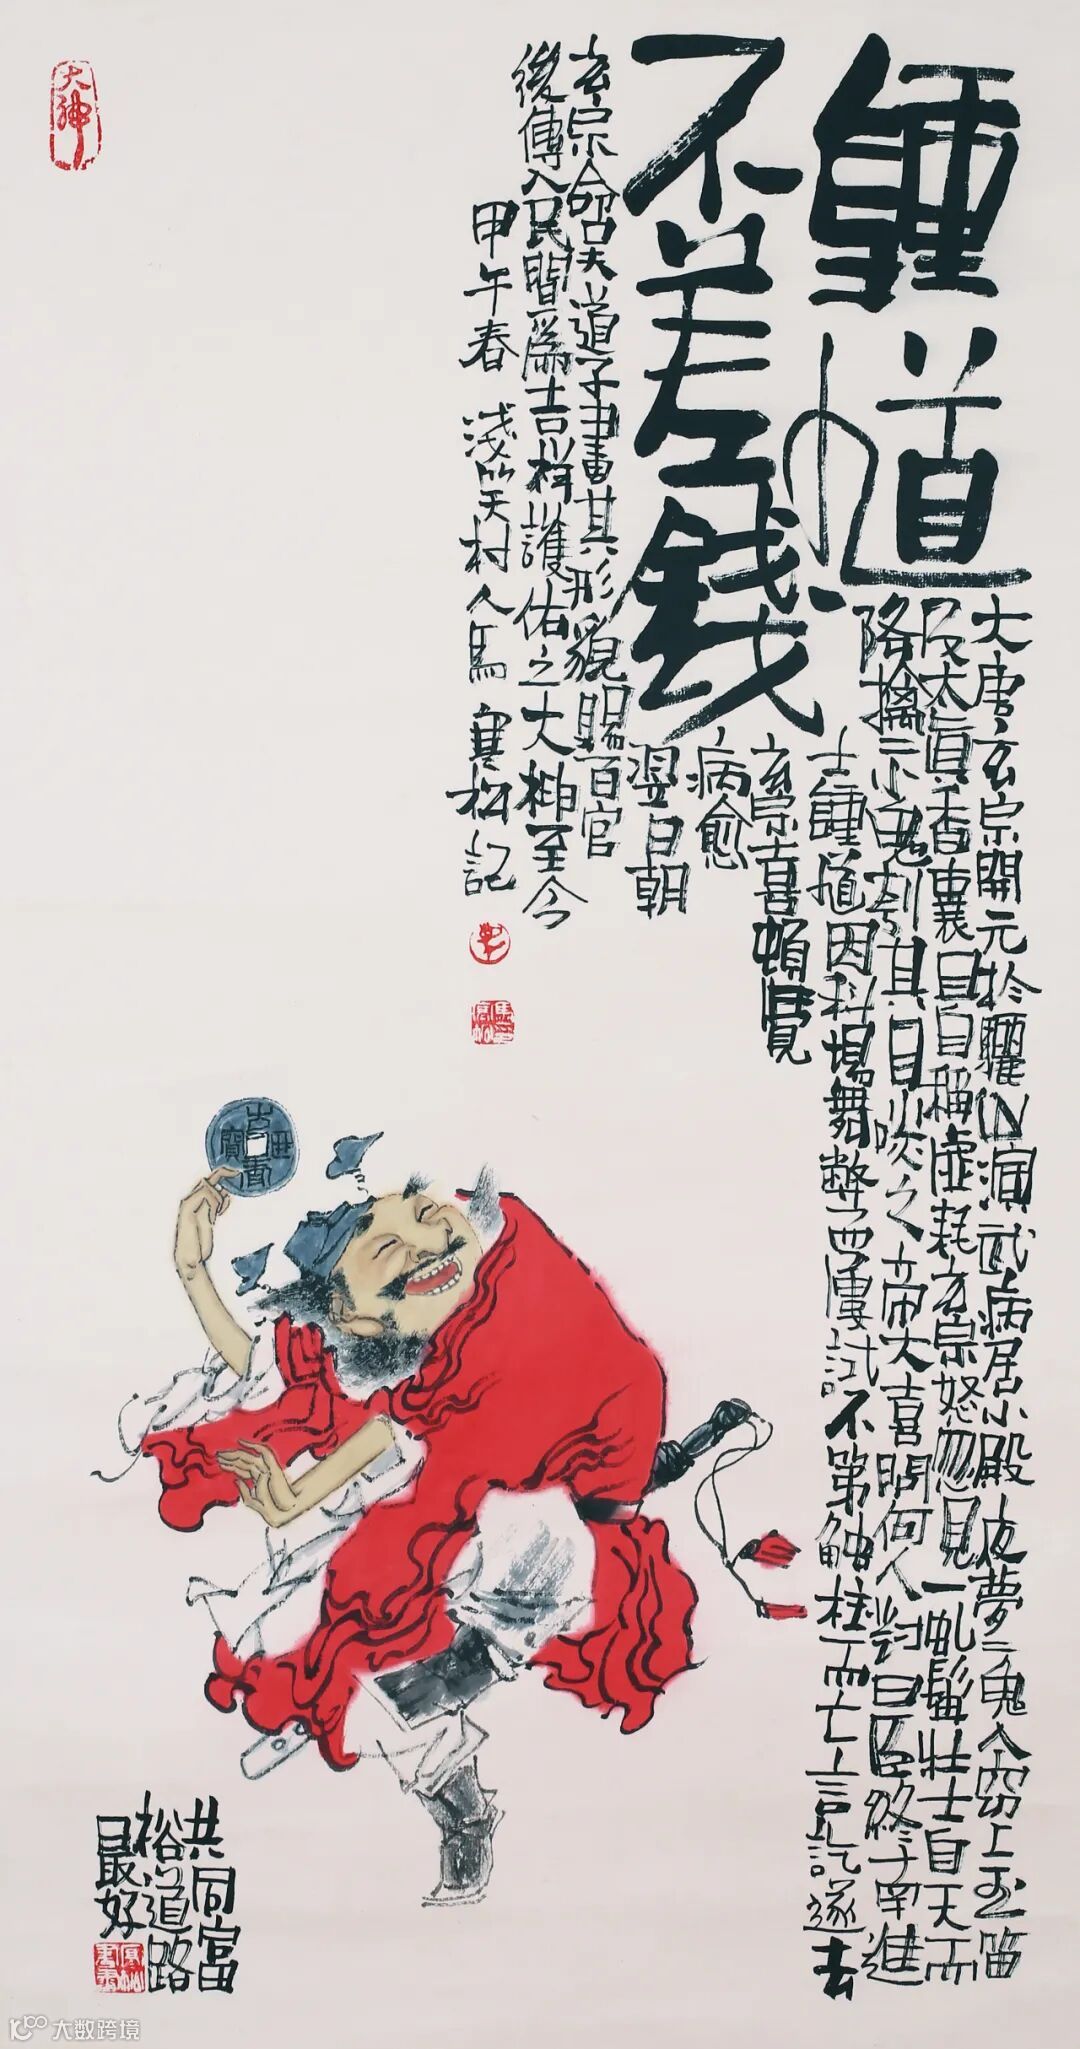 鍾馗
不差錢
大唐玄宗開元於驪山演武病居小殿夜夢二鬼入竊上玉笛
及太真香囊且自稱虛耗玄宗怒忽見一虬髯壯士自天而
降擒二小鬼刳其目之帝大喜問何人對曰臣終南進
士鍾馗因科場舞弊而屢試不第觸柱而亡言訖遂去
玄宗喜頓覺
病愈
翌日朝
玄宗命召吳道子畫其形貌賜百官
後傳入民間爲吉祥護佑之大神至今
甲午春 淺笑天村人馬寒松記
大神
共同富
裕道路
最好
大数跨境